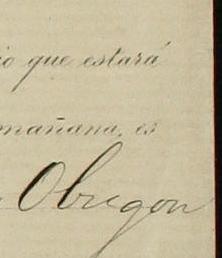 que estará
mañana, es
Obregon